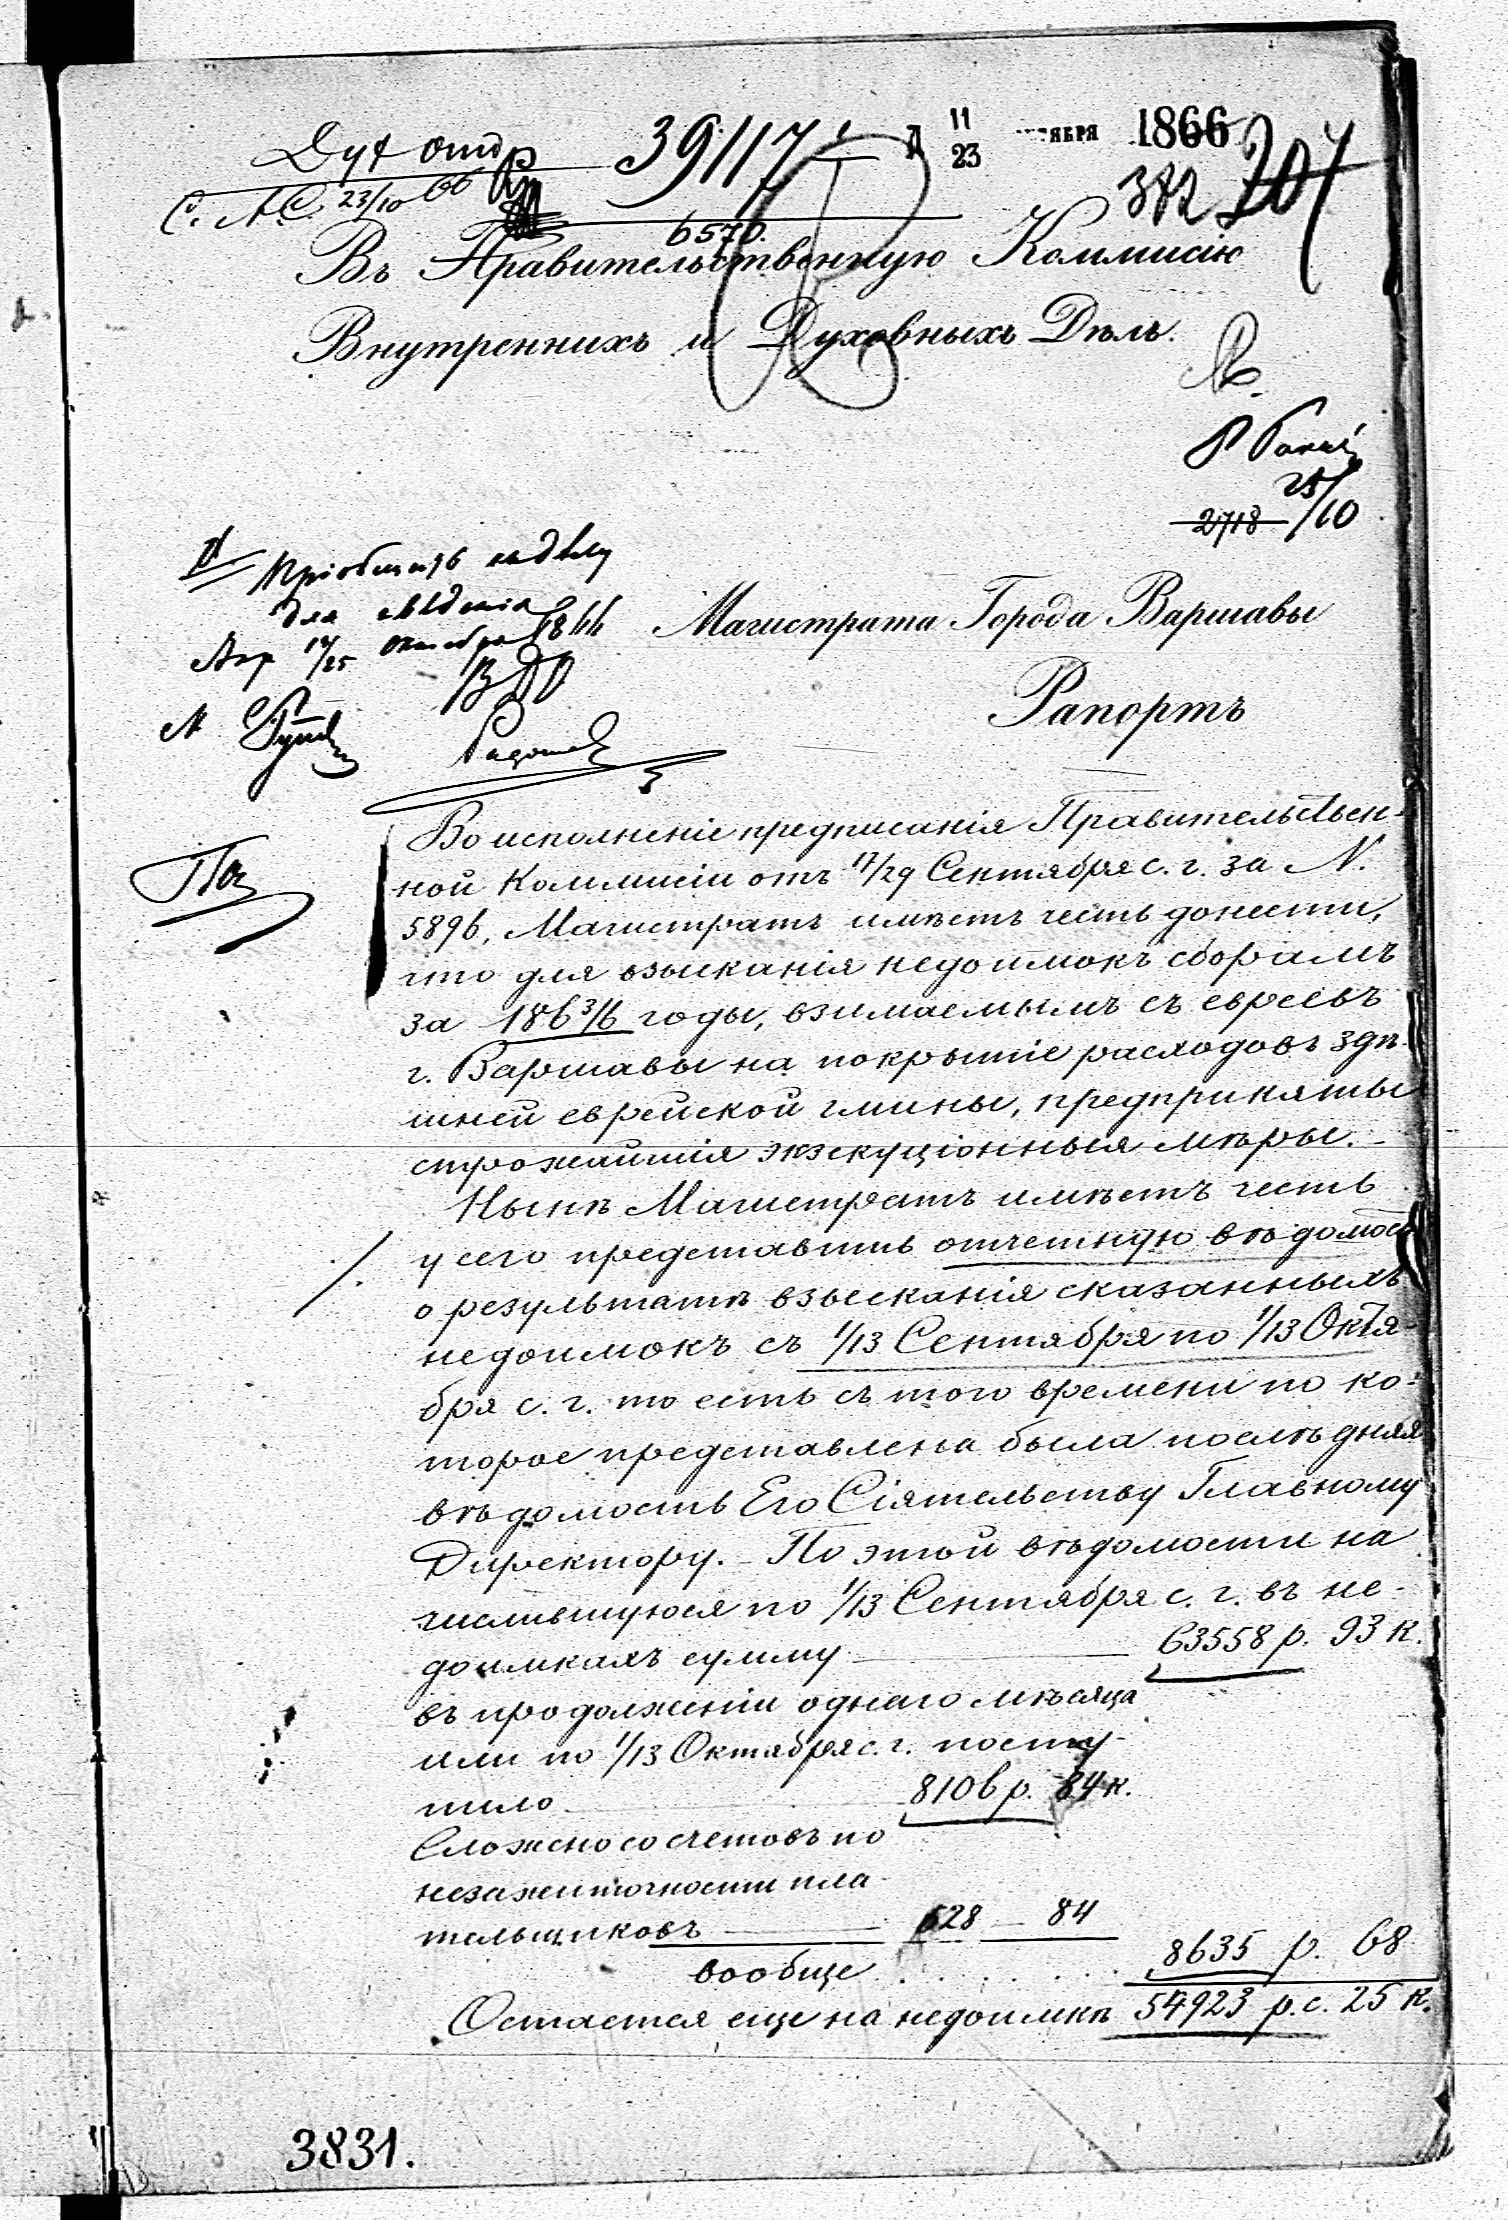 Дух Отд
39117
Д 11/23 ября 1866
382 204
23/10 66
6570.
Въ Правительственную Коммисію
Внутреннихъ и Духовныхъ Дѣлъ.
25/10
2718
Пріобщить къ дѣлу
для свѣденія
Вар 13/25 Октября 1866
Магистрата Города Варшавы
Рапортъ
Во исполненіе предписанія Правительствен-
ной Коммисіи отъ 17/29 Сентября с. г. за N.
5896, Магистратъ имѣетъ честь донести,
что для взысканія недоимокъ сборамъ
за 1863/6 годы, взимаемымъ съ евреевъ
г. Варшавы на покрытіе расходовъ здѣ-
шней еврейской гмины, предприняты
строжайшія экзекуціонныя мѣры. -
Нынѣ Магистратъ имѣетъ честь
у сего представить отчетную вѣдомость
о результатѣ взысканія сказанныхъ
недоимокъ съ 1/13 Сентября по 1/13 Октя-
бря с. г. то есть съ того времени по ко-
торое представлена была послѣдняя
вѣдомость Его Сіятельству Главному
Директору. - По этой вѣдомости на
числившуюся по 1/13 Сентября с. г. въ не-
доимкахъ сумму 63558 р. 93 к.
въ продолженіи однаго мѣсяца
или по 1/13 Октября с. г. посту-
пило 8106 р. 84 к.
Сложено со счетовъ по
незажиточности пла-
тельщиковъ 528 — 84
вообще . . . . . . . 8635 р. 68
Остается еще на недоимкѣ 54923 р. с. 25 к.
3831.